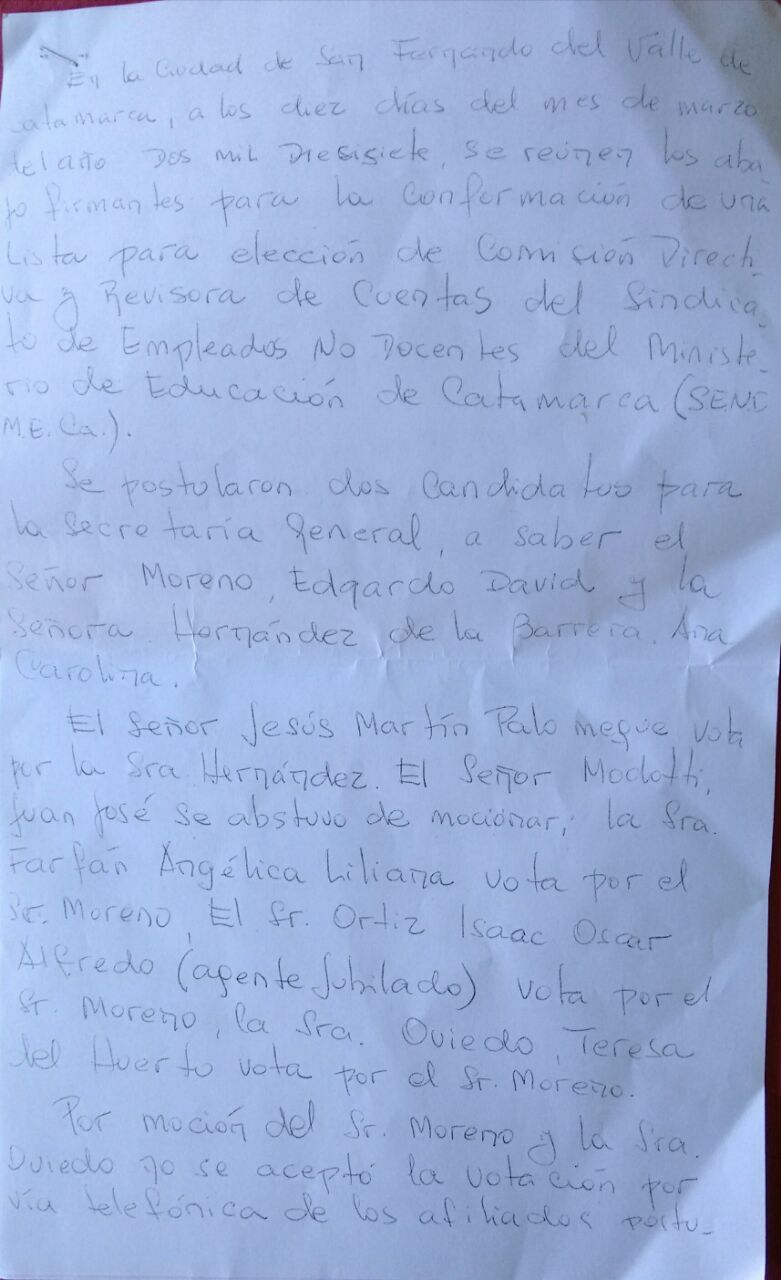 En la Ciudad de San Fernando del Valle de
Catamarca, a los diez días del mes de marzo
del año Dos Mil Diesisiete, se reúnen los aba
jo firmantes para la conformación de una
Lista para elección de Comisión Directi_
va y Revisora de Cuentas del Sindica_
to de Empleados No Docentes del Ministe_
rio de Educación de Catamarca (SEND
M.E.Ca.).
Se postularon dos candidatos para
la Secretaría General, a saber el
Señor Moreno, Edgardo David y la
Señora Hernández de la Barrera, Ana
Carolina.
El Señor Jesús Martín Palomeque vota
por la Sra Hernández. El Señor Modotti,
Juan José se abstuvo de mocionar, la Sra.
Farfán Angélica Liliana vota por el
Sr. Moreno, El Sr. Ortiz Isaac Oscar
Alfredo (agente Jubilado) vota por el
Sr. Moreno, la Sra. Oviedo, Teresa
del Huerto vota por el Sr. Moreno.
Por moción del Sr. Moreno y la Sra.
Oviedo no se aceptó la votación por
vía telefónica de los afiliados postu_